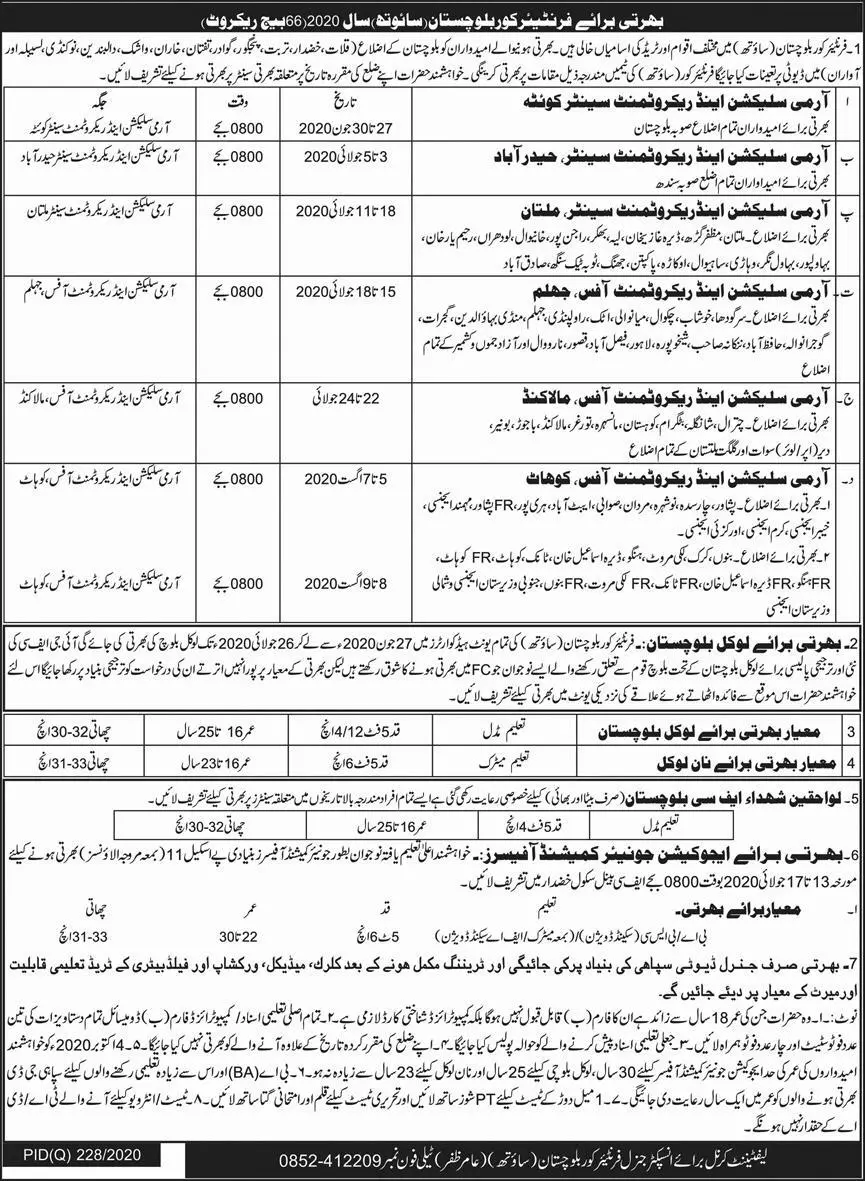 بھرتی برائے فرنٹیئر کور بلوچستان (سائوتھ) سال 2020 (66 بیچ ریکروٹ)
1۔ فرنٹیئر کور بلوچستان (ساؤتھ) میں مختلف اقوام اور ٹریڈ کی اسامیاں خالی ہیں۔ بھرتی ہونیوالے امیدواران کو بلوچستان کے اضلاع (قلات، خضدار، تربت، پنجگور، گوادر، تفتان، خاران، واشک، دالبندین، نوکنڈی، لسبیلہ اور
آواران) میں ڈیوٹی پر تعینات کیا جائیگا فرنٹیئر کور (ساؤتھ) کی ٹیمیں مندرجہ ذیل مقامات پر بھرتی کرینگی۔ خواہشمند حضرات اپنے ضلع کی مقررہ تاریخ پر متعلقہ بھرتی سینٹر پر بھرتی ہونے کیلئے تشریف لائیں۔
ا آرمی سلیکشن اینڈ ریکروٹمنٹ سینٹر کوئٹہ تاریخ وقت جگہ
بھرتی برائے امیدواران تمام اضلاع صوبہ بلوچستان 27 تا 30 جون 2020 0800 بجے آرمی سلیکشن اینڈ ریکروٹمنٹ سینٹر کوئٹہ
ب آرمی سلیکشن اینڈ ریکروٹمنٹ سینٹر، حیدر آباد 3 تا 5 جولائی 2020 0800 بجے آرمی سلیکشن اینڈ ریکروٹمنٹ سینٹر حیدر آباد
بھرتی برائے امیدواران تمام اضلع صوبہ سندھ
پ آرمی سلیکشن اینڈ ریکروٹمنٹ سینٹر، ملتان 11 تا 18 جولائی 2020 0800 بجے آرمی سلیکشن اینڈ ریکروٹمنٹ سینٹر ملتان
بھرتی برائے اضلاع۔ ملتان، مظفر گڑھ، ڈیرہ غازیخان، لیہ، بھکر، راجن پور، خانیوال، لودھراں، رحیم یار خان،
بہاولپور، بہاول نگر، وہاڑی، ساہیوال، اوکاڑہ، پاکپتن، جھنگ، ٹوبہ ٹیک سنگھ، صادق آباد
ت۔ آرمی سلیکشن اینڈ ریکروٹمنٹ آفس، جہلم 15 تا 18 جولائی 2020 0800 بجے آرمی سلیکشن اینڈ ریکروٹمنٹ آفس، جہلم
بھرتی برائے اضلاع۔ سرگودھا، خوشاب، چکوال، میانوالی، اٹک، راولپنڈی، جہلم، منڈی بہاؤالدین، گجرات،
گوجرانوالہ، حافظ آباد، ننکانہ صاحب، شیخوپورہ، لاہور، فیصل آباد، قصور، نارووال اور آزاد جموں و کشمیر کے تمام
اضلاع
ج۔ آرمی سلیکشن اینڈ ریکروٹمنٹ آفس، مالاکنڈ 22 تا 24 جولائی 0800 بجے آرمی سلیکشن اینڈ ریکروٹمنٹ آفس، مالاکنڈ
بھرتی برائے اضلاع۔ چترال، شانگلہ، بٹگرام، کوہستان، مانسہرہ، تورغر، مالاکنڈ، باجوڑ، بونیر،
دیر (اپر/لوئر) سوات اور گلگت بلتستان کے تمام اضلاع
د۔ آرمی سلیکشن اینڈ ریکروٹمنٹ آفس، کوہاٹ 5 تا 7 اگست 2020 0800 بجے آرمی سلیکشن اینڈ ریکروٹمنٹ آفس، کوہاٹ
۱۔ بھرتی برائے اضلاع۔ پشاور، چارسدہ، نوشہرہ، مردان، صوابی، ایبٹ آباد، ہری پور، FR پشاور، مہمند ایجنسی،
خیبر ایجنسی، کرم ایجنسی، اورکزئی ایجنسی۔
۲۔ بھرتی برائے اضلاع۔ بنوں، کرک، لکی مروٹ، ہنگو، ڈیرہ اسماعیل خان، ٹانک، کوہاٹ، FR کوہاٹ،
FR ہنگو، FR ڈیرہ اسماعیل خان، FR ٹانک، FR لکی مروت، FR بنوں، جنوبی وزیرستان ایجنسی و شمالی 8 تا 9 اگست 2020 0800 بجے آرمی سلیکشن اینڈ ریکروٹمنٹ آفس، کوہاٹ
وزیرستان ایجنسی
2۔ بھرتی برائے لوکل بلوچستان:۔ فرنٹیئر کور بلوچستان (ساؤتھ) کی تمام یونٹ ہیڈکوارٹرز میں 27 جون 2020ء سے لے کر 26 جولائی 2020ء تک لوکل بلوچ کی بھرتی کی جائے گی آئی جی ایف سی کی
نئی اور ترجیحی پالیسی برائے لوکل بلوچستان کے تحت بلوچ قوم سے تعلق رکھنے والے ایسے نوجوان جو FC میں بھرتی ہونے کا شوق رکھتے ہیں لیکن بھرتی کے معیار پر پورا نہیں اترتے ان کی درخواست کو ترجیحی بنیاد پر رکھا جائیگا اس لئے
خواہشمند حضرات اس موقع سے فائدہ اٹھاتے ہوئے علاقے کی نزدیکی یونٹ میں بھرتی کیلئے تشریف لائیں۔
3 معیار بھرتی برائے لوکل بلوچستان تعلیم مڈل قد 5 فٹ 4/12 انچ عمر 16 تا 25 سال چھاتی 30-32 انچ
4 معیار بھرتی برائے نان لوکل تعلیم میٹرک قد 5 فٹ 6 انچ عمر 16 تا 23 سال چھاتی 31-33 انچ
5۔ لواحقین شہداء ایف سی بلوچستان (صرف بیٹا اور بھائی) کیلئے خصوصی رعایت رکھی گئی ہے ایسے تمام افراد مندرجہ بالا تاریخوں میں متعلقہ سینٹرز پر بھرتی کیلئے تشریف لائیں۔
تعلیم مڈل قد 5 فٹ 4 انچ عمر 16 تا 25 سال چھاتی 30-32 انچ
6۔ بھرتی برائے ایجوکیشن جونیئر کمیشنڈ آفیسرز:۔ خواہشمند اعلیٰ تعلیم یافتہ نوجوان بطور جونیئر کمیشنڈ آفیسرز بنیادی پے اسکیل 11 (بمعہ مروجہ الاؤنسز) بھرتی ہونے کیلئے
مورخہ 13 تا 17 جولائی 2020 بوقت 0800 بجے ایف سی پبلک سکول خضدار میں تشریف لائیں۔
ا۔ معیار برائے بھرتی۔ تعلیم قد عمر چھاتی
بی اے/بی ایس سی (سیکنڈ ڈویژن)/(بمعہ میٹرک/ایف اے سیکنڈ ڈویژن) 5 فٹ 6 انچ 22 تا 30 31-33 انچ
7۔ بھرتی صرف جنرل ڈیوٹی سپاہی کی بنیاد پر کی جائیگی اور ٹریننگ مکمل ہونے کے بعد کلرک، میڈیکل، ورکشاپ اور فیلڈ بیٹری کے ٹریڈ تعلیمی قابلیت
اور میرٹ کے معیار پر دیئے جائیں گے۔
نوٹ:۔ ۱۔ وہ حضرات جن کی عمر 18 سال سے زائد ہے ان کا فارم (ب) قابل قبول نہیں ہو گا بلکہ کمپیوٹرائزڈ شناختی کارڈ لازمی ہے۔ ۲۔ تمام اصلی تعلیمی اسناد/کمپیوٹرائزڈ فارم (ب) ڈومیسائل تمام دستاویزات کی تین
عدد فوٹو سٹیٹ اور چار عدد فوٹو ہمراہ لائیں۔ ۳۔ جعلی تعلیمی اسناد پیش کرنے والے کو حوالہ پولیس کیا جائیگا۔ ۴۔ اپنے ضلع کی مقرر کردہ تاریخ کے علاوہ آنے والے کو بھرتی نہیں کیا جائیگا۔ ۵۔ 4 اکتوبر 2020 کو خواہشمند
امیدواروں کی عمر کی حد ایجوکیشن جونیئر کمیشنڈ آفیسر کیلئے 30 سال، لوکل بلوچی کیلئے 25 سال اور نان لوکل کیلئے 23 سال سے زیادہ نہ ہو۔ ۶۔ بی اے (BA) اور اس سے زیادہ تعلیمی رکھنے والوں کیلئے سپاہی جی ڈی
بھرتی ہونے والوں کو عمر میں ایک سال رعایت دی جائیگی۔ ۷۔ 1 میل دوڑ کے ٹیسٹ کیلئے PT شوز ساتھ لائیں اور تحریری ٹیسٹ کیلئے قلم اور امتحانی گتا ساتھ لائیں۔ ۸۔ ٹیسٹ/انٹرویو کیلئے آنے والے ٹی اے/ڈی
اے کے حقدار نہیں ہونگے۔
لیفٹیننٹ کرنل برائے انسپکٹر جنرل فرنٹیئر کور بلوچستان (ساؤتھ) (عامر ظفر) ٹیلی فون نمبر 0852-412209
PID(Q) 228/2020